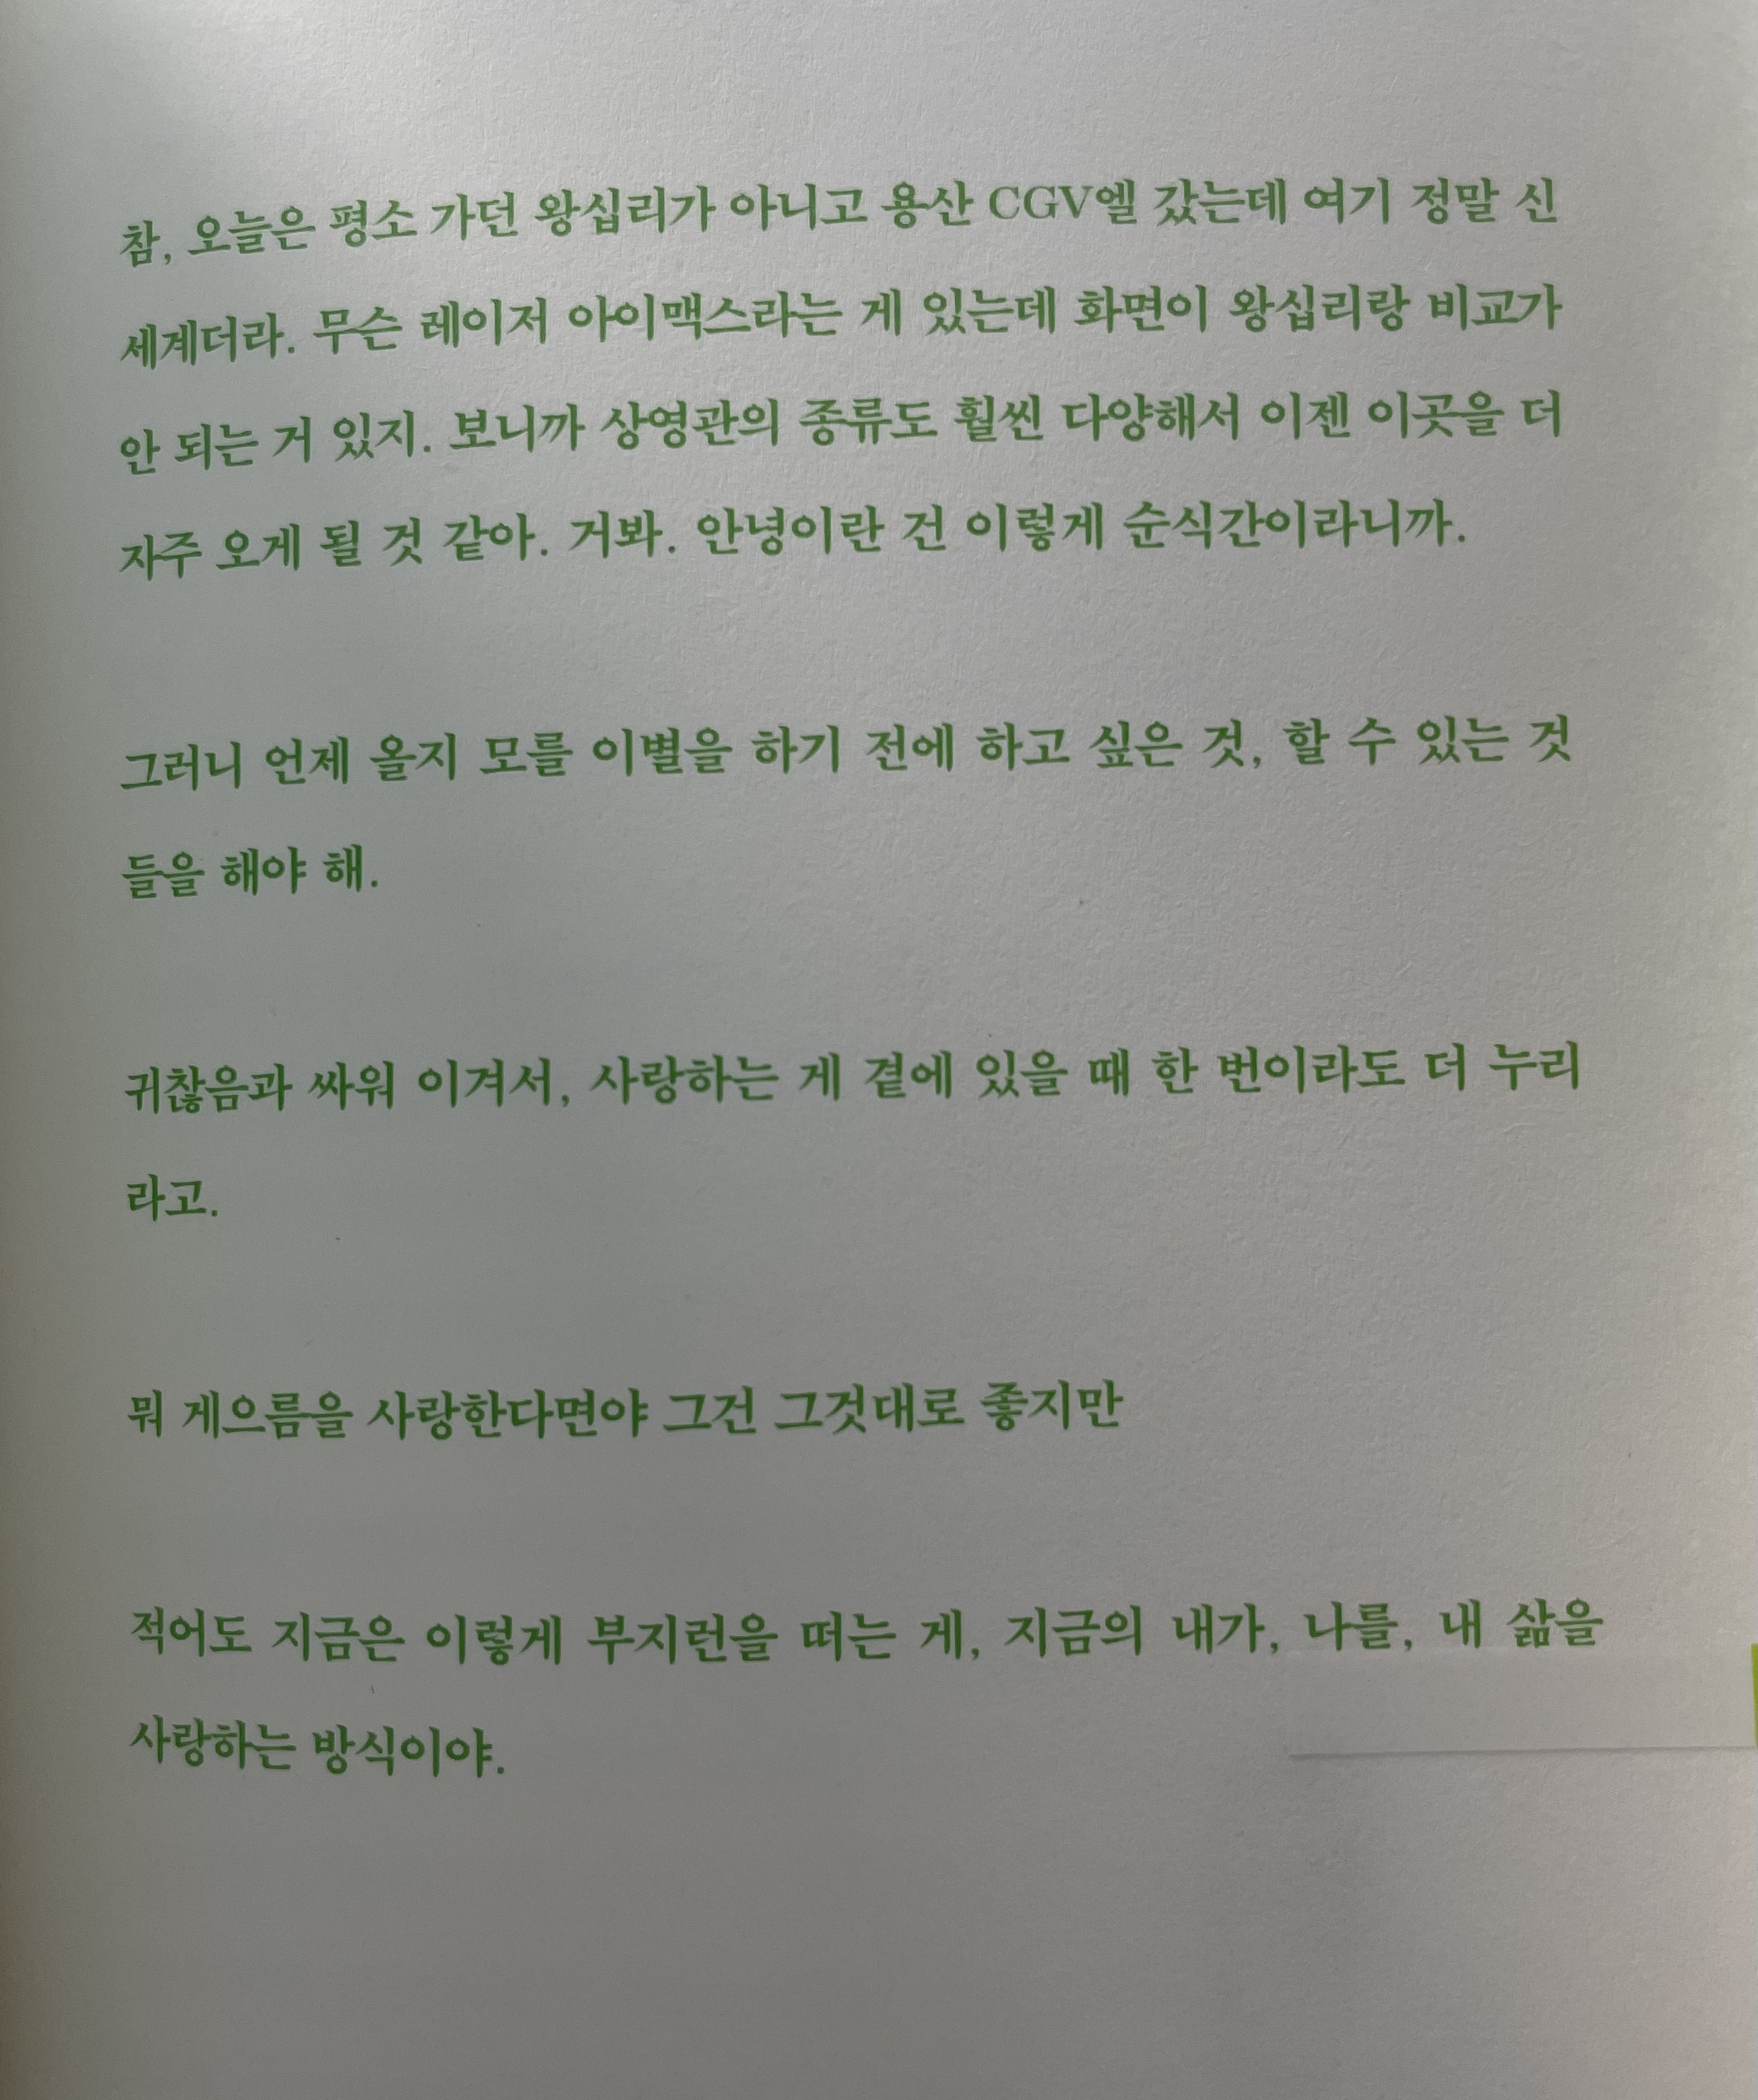 참, 오늘은 평소 가던 왕십리가 아니고 용산 CGV엘 갔는데 여기 정말 신
세계더라. 무슨 레이저 아이맥스라는 게 있는데 화면이 왕십리랑 비교가
안 되는 거 있지. 보니까 상영관의 종류도 훨씬 다양해서 이젠 이곳을 더
자주 오게 될 것 같아. 거봐. 안녕이란 건 이렇게 순식간이라니까.
그러니 언제 올지 모를 이별을 하기 전에 하고 싶은 것, 할 수 있는 것
들을 해야 해.
귀찮음과 싸워 이겨서, 사랑하는 게 곁에 있을 때 한 번이라도 더 누리
라고.
뭐 게으름을 사랑한다면야 그건 그것대로 좋지만
적어도 지금은 이렇게 부지런을 떠는 게, 지금의 내가, 나를, 내 삶을
사랑하는 방식이야.